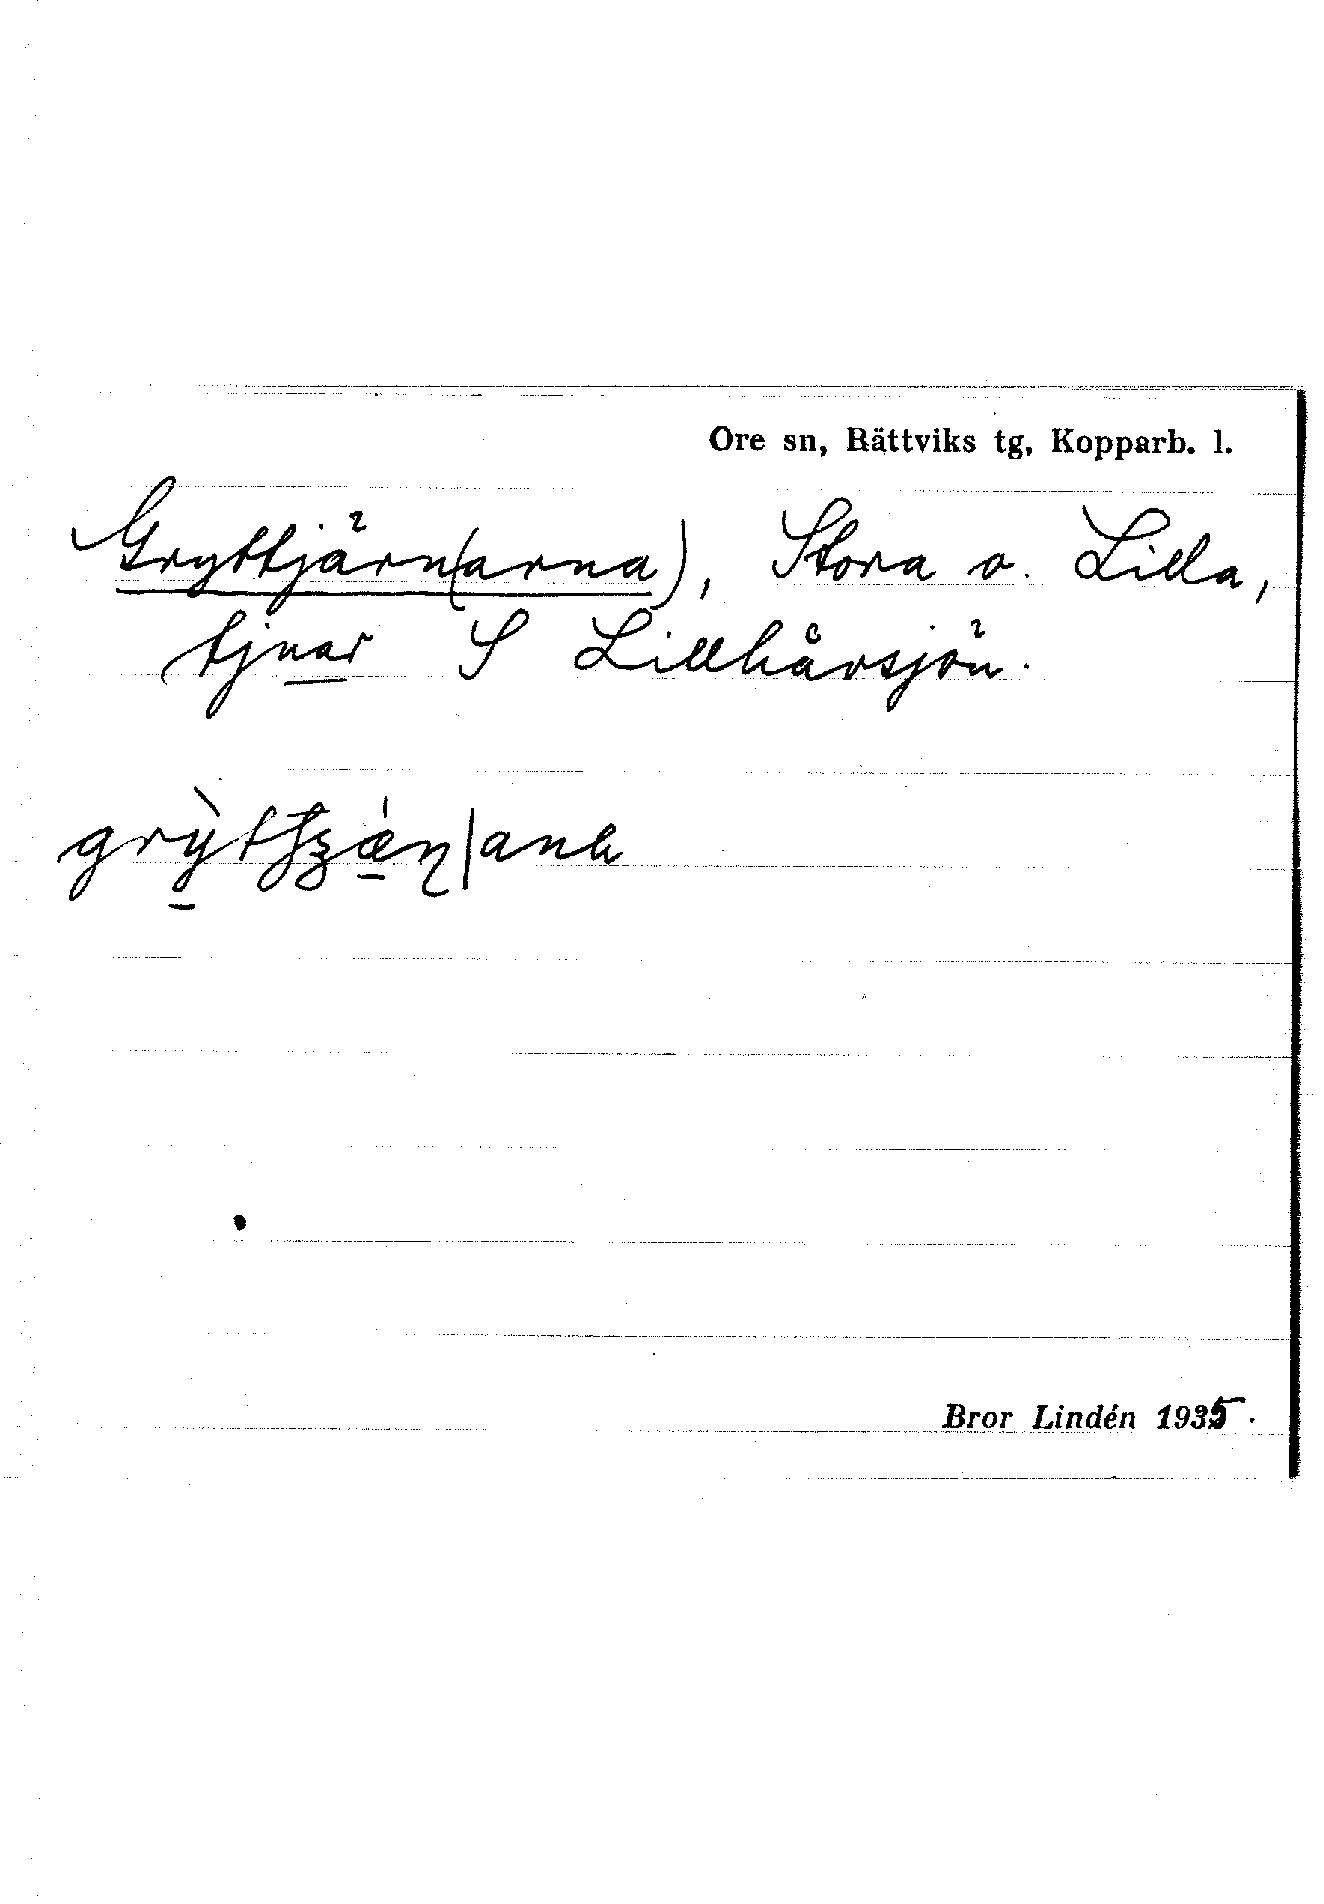 Ore sn, Rättviks tg, Kopparb. l.
Gryttjärn(arna), Stora o. Lilla,
tjnar S Lillhårsjön.
Bror Lindén 1935.